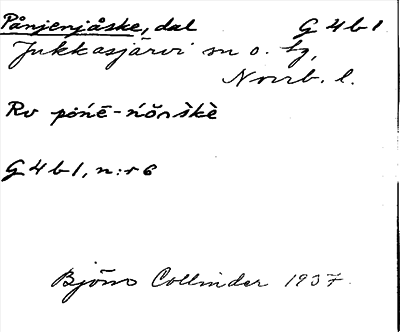 Pånjenjåske, dal G 4 b 1
Jukkasjärvi sn o. tg,
Norrb. l.
Rv pońē-ńǒrškè
G 4 b 1, n:r 6
Björn Collinder 1937.